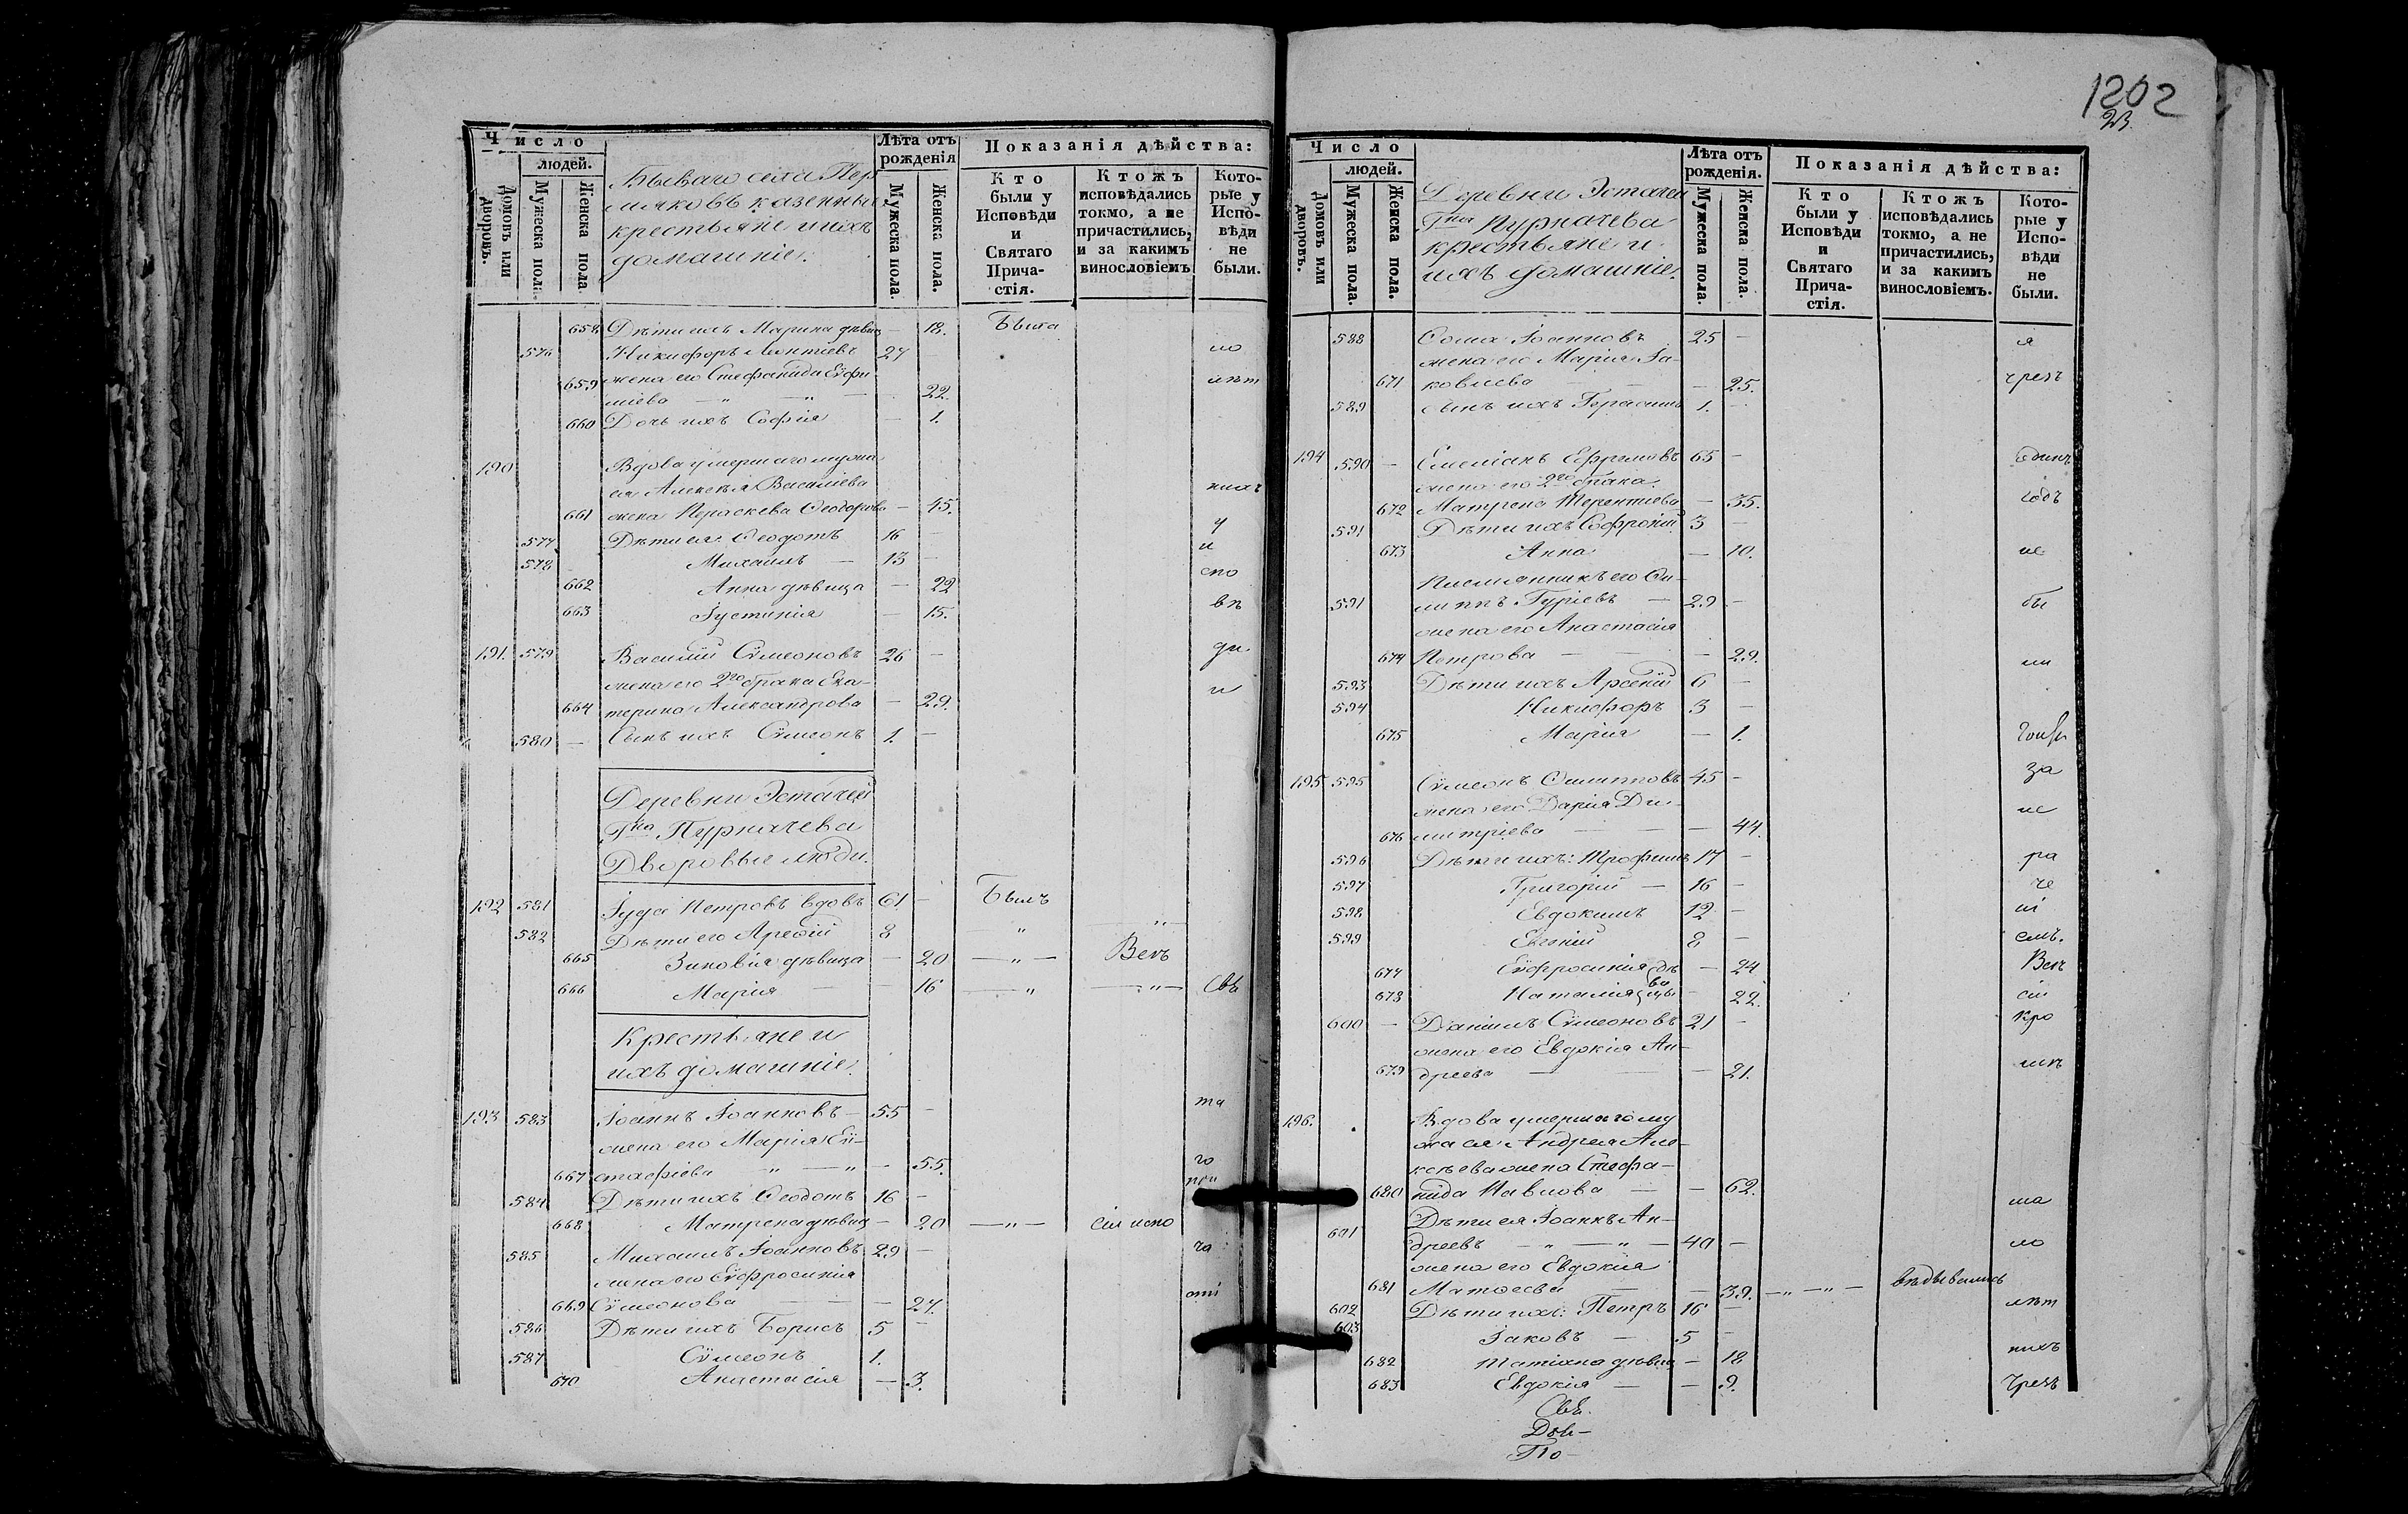 1202
23.
Число
людей.
Домовъ или дворовъ.
Мужеска пола.
Женска пола.
Бываго села Пер
мяковъ казенныи
крестьяне и ихъ
домашніе:
Лѣта отъ рожденія
Мужеска пола.
Женска пола.
Показанія дѣйства:
Кто были у Исповѣди и Святаго Прича-стія.
Ктожъ исповѣдались токмо, а не причастились, и за какимъ винословіемъ
Кото-рые у Испо-вѣди не были.
658 Дѣти ихъ Марина дѣвиц — 18. Была
576 Никифоръ Леонтіевъ 27 — ло
659 жена его Стефанида Евфи- лѣт
міева — " — " — 22.
660 Дочь ихъ Софія — 1.
190 Вдова умершаго мужа
ея Алексѣя Василіева нихъ
661 жена Параскева Ѳеодорова — 45.
577 Дѣти ея: Ѳеодотъ 16 — у
578 Михаилъ — 13 — и
662 Анна дѣвица — 22 спо
663 Іустинія — 15. вѣ
191. 579 Василій Сѵмеоновъ 26 — ди
жена его 2го брака Ека- и
664 терина Александрова — 29.
580 — Сынъ ихъ Сѵмеонъ 1. —
Деревни Эстачей
Гна Пурначева
Дворовые люди.
192 581 Іуда Петровъ вдовъ 61. — Былъ
582 Дѣти его Арефій 8 " — " —
665 Зиновія дѣвица — 20 — " — Всѣ
666 Марія — — 16 — " — " — Свя
Крестьяне и
ихъ домашніе.
193 583 Іоаннъ Іоанновъ — 55 — та
жена его Марія Ев-
667 стафіева — " — " — 55. го
584 Дѣти ихъ Ѳеодотъ 16 — при
668 Матрена дѣвиц — 20 — " — сіи испо
585 Михаилъ Іоанновъ 29 — ча
жена его Евфросинія
669 Сѵмеонова — — 27. сті
586 Дѣти ихъ Борисъ 5 —
587 Сѵмеонъ 1.
670 Анастасія — 3.
Число
людей.
Домовъ или дворовъ.
Мужеска пола.
Женска пола.
Деревни Эстачей
Гна Пурначева
крестьяне и
ихъ домашніе.
Лѣта отъ рожденія.
Мужеска пола.
Женска пола.
Показанія дѣйства:
Кто были у Исповѣди и Святаго Прича-стія.
Ктожъ исповѣдались токмо, а не причастились, и за какимъ винословіемъ.
Кото-рые у Испо-вѣди не были.
588 Іоанновъ 25 — я
жена его Марія Іа-
671 ковлева — — 25. чрезъ
589 сынъ ихъ Герасимъ 1. —
194 590 — Емеліанъ Ефремовъ 65 — единъ
жена его 2го брака
672 Матрена Терентіева — 35. годъ
591 Дѣти ихъ Софроній 3 —
673 Анна — 10. не
Племянникъ его Фи-
591 липпъ Гуріевъ — 29 — бы
жена его Анастасія
674 Петрова — — 29. ли
593 Дѣти ихъ Арсеній 6 —
594 Никифоръ 3 —
675 Марія — 1.
195 595 Сѵмеонъ Филипповъ 45 — за
жена его Дарія Ди- не
676 митріева — — 44.
596 Дѣти ихъ: Трофимъ 17 — ра
597 Григорій — 16 — че
598 Евдокимъ 12 — ні
599 Евгеній 8 — емъ.
677 Евфросинія дѣ — 24 Всѣ
678 Наталія вицы — 22. сіи
600 — Даніилъ Сѵмеоновъ 21 — кро
жена его Евдокія Ан-
679 дреева — — 21. мѣ
196. Вдова умершаго му
жа ея Андрея Але-
ксѣева жена Стефа-
680 нида Павлова — — 62. ма
Дѣти ея Іоаннъ Ан-
601 дреевъ — " — " — 40 — ло
жена его Евдокія
681 Матѳеева — 39. — " — " — вѣдывались
602 Дѣти ихъ: Петръ 16 — лѣт
603 Іаковъ — 5 — нихъ
682 Татіана дѣвиц — 18
683 Евдокія — — 9. Чрезъ